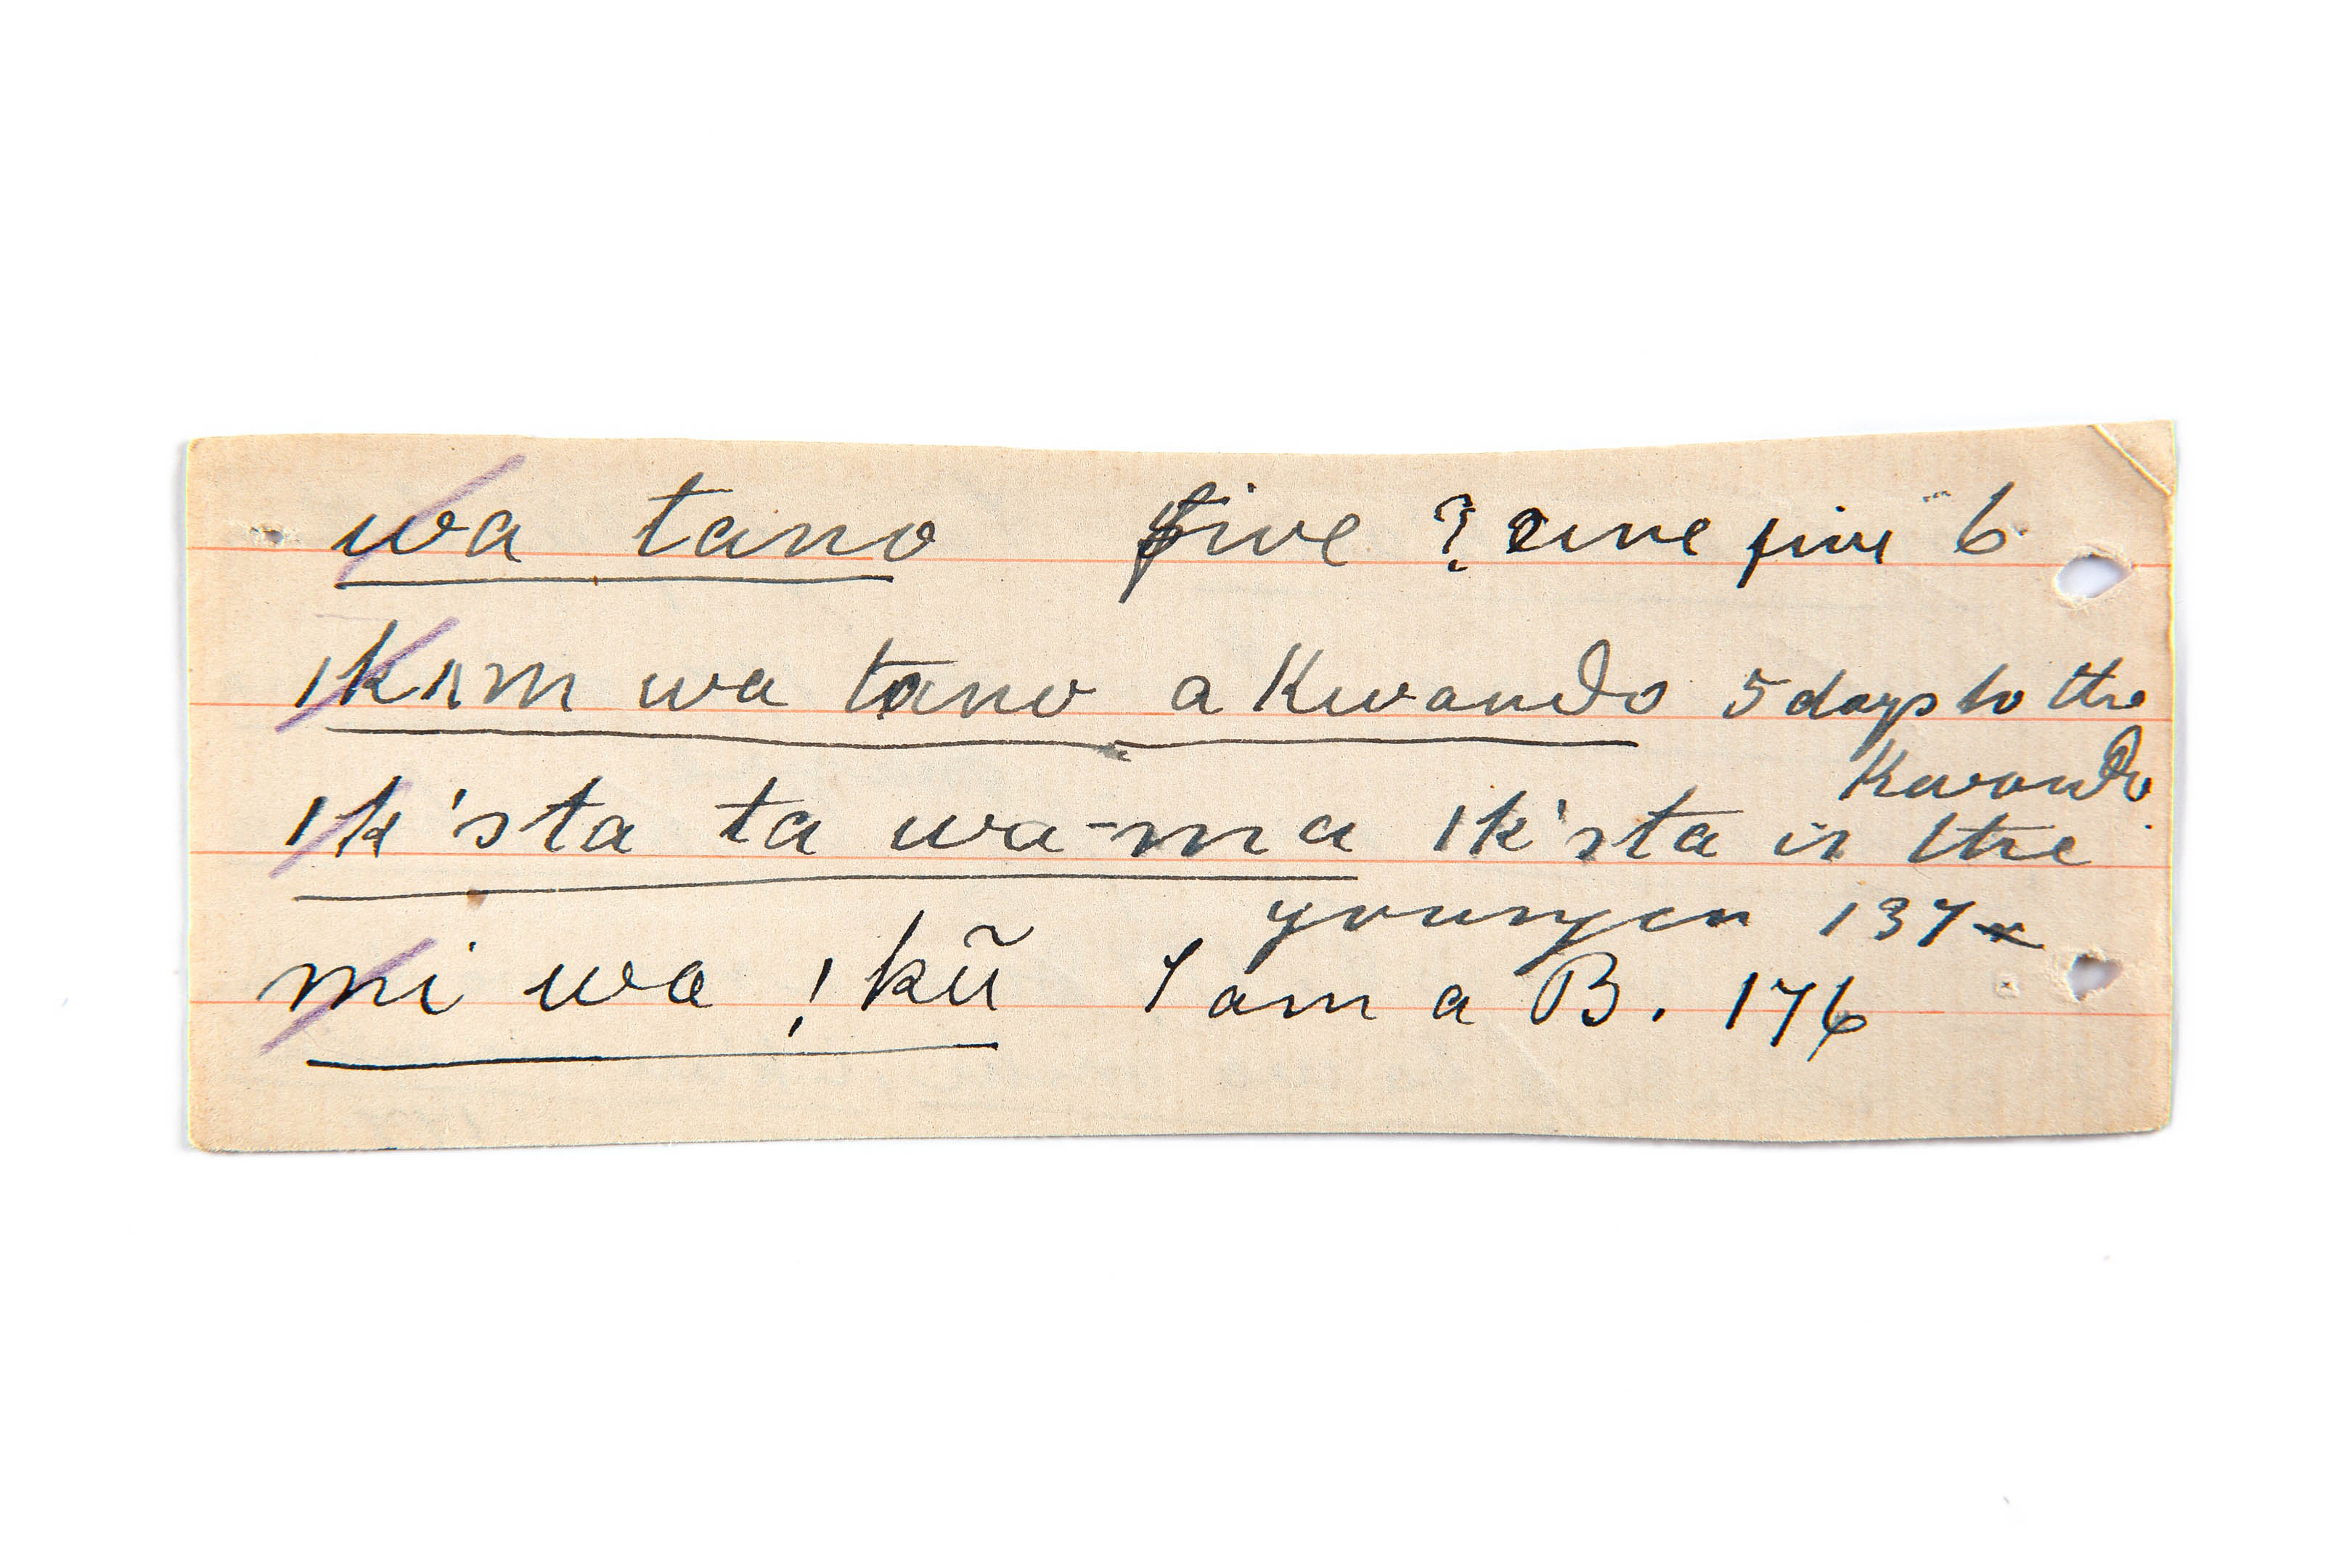 wa tano five ? eine five 6
|kam wa tano a Kwando 5 days to the
Kwando
|k'sta ta wa-ma |k'sta is the
younger 137
mi wa !kũ I am a B. 176